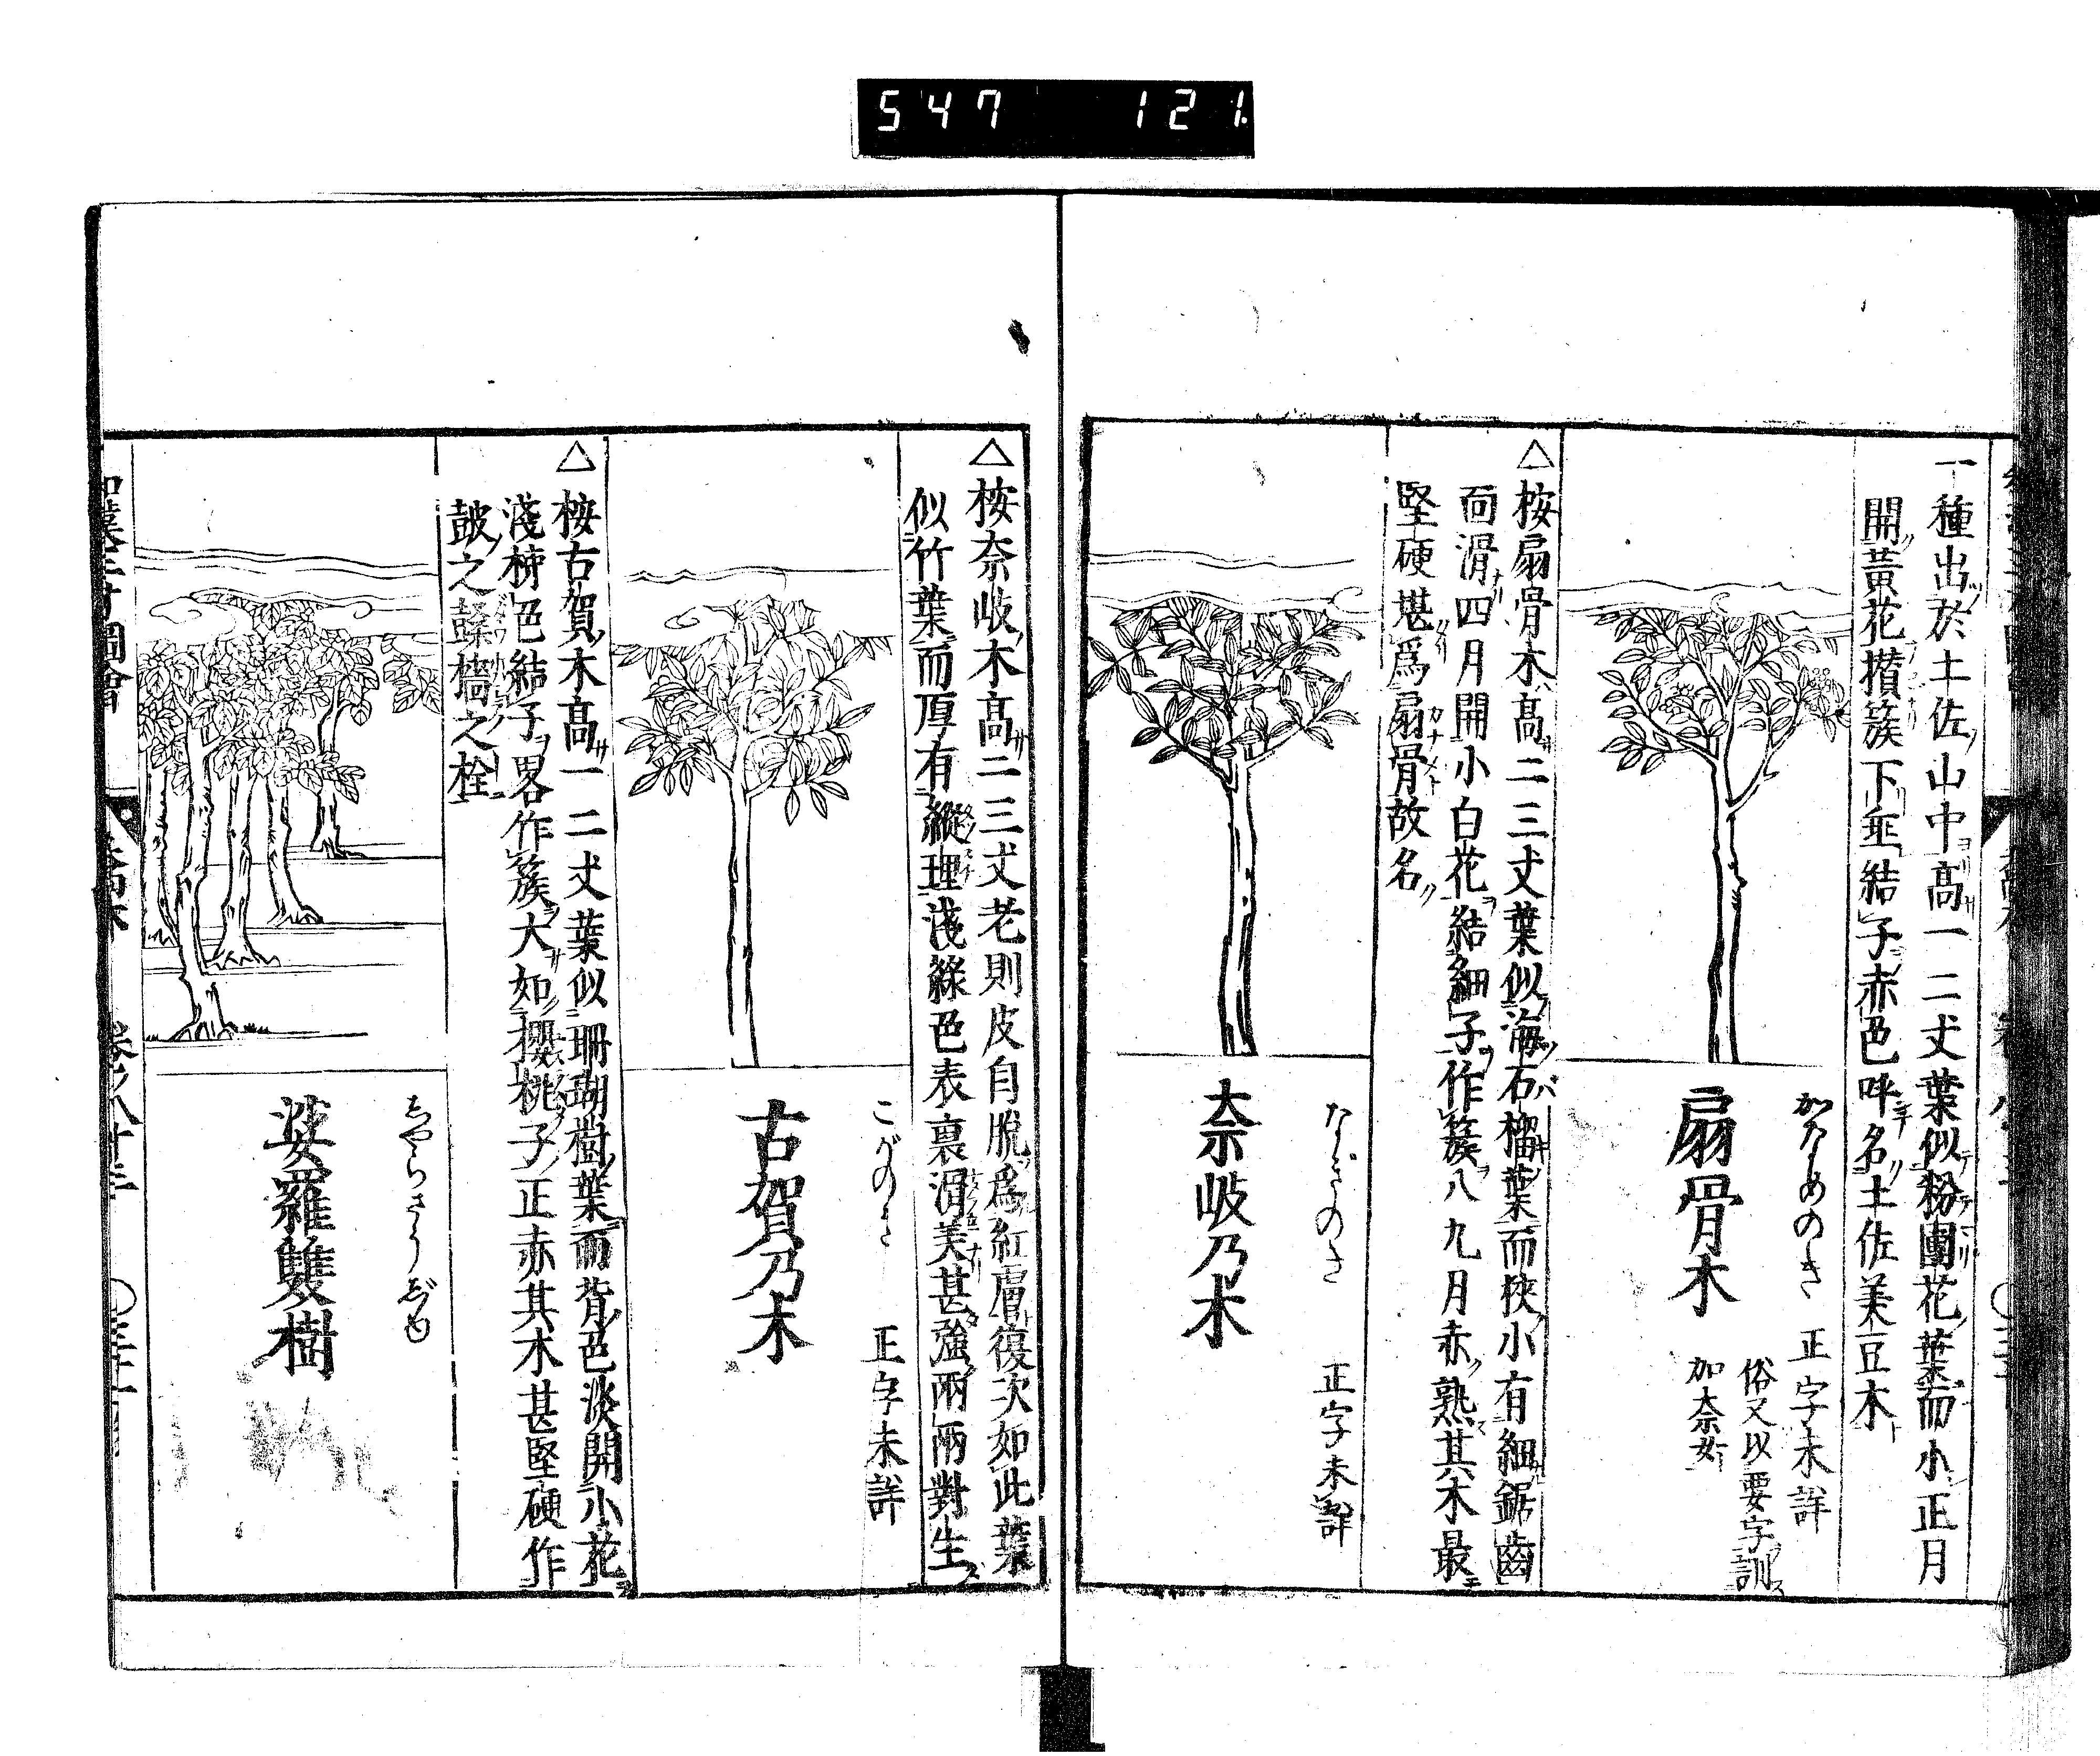 547 121
一種出於土佐山中髙一二丈葉似粉團花葉而小正月
開黃花攅簇下垂結子赤色呼名土佐美豆木
かなめのき
扇骨木
正字未詳
俗又以要字訓
加奈女
△按扇骨木髙二三丈葉似海石榴葉而狹小有細鋸齒
面滑四月開小白花結細子作簇八九月赤熟其木最
堅硬堪爲扇骨故名
なぎのき
奈岐乃木
正字未詳
△按奈岐木髙二三丈老則皮自脫爲紅膚復次如此葉
似竹葉而厚有縱理淺綠色表裏滑美甚強兩兩對生
こがのき
古賀乃木
正字未詳
△按古賀木髙一二丈葉似珊瑚樹葉而背色淡開小花
淺柹色結子畧作簇大如櫻桃子正赤其木甚堅硬作
皷之
檣之栓
しやらさうじゆ
娑羅雙樹